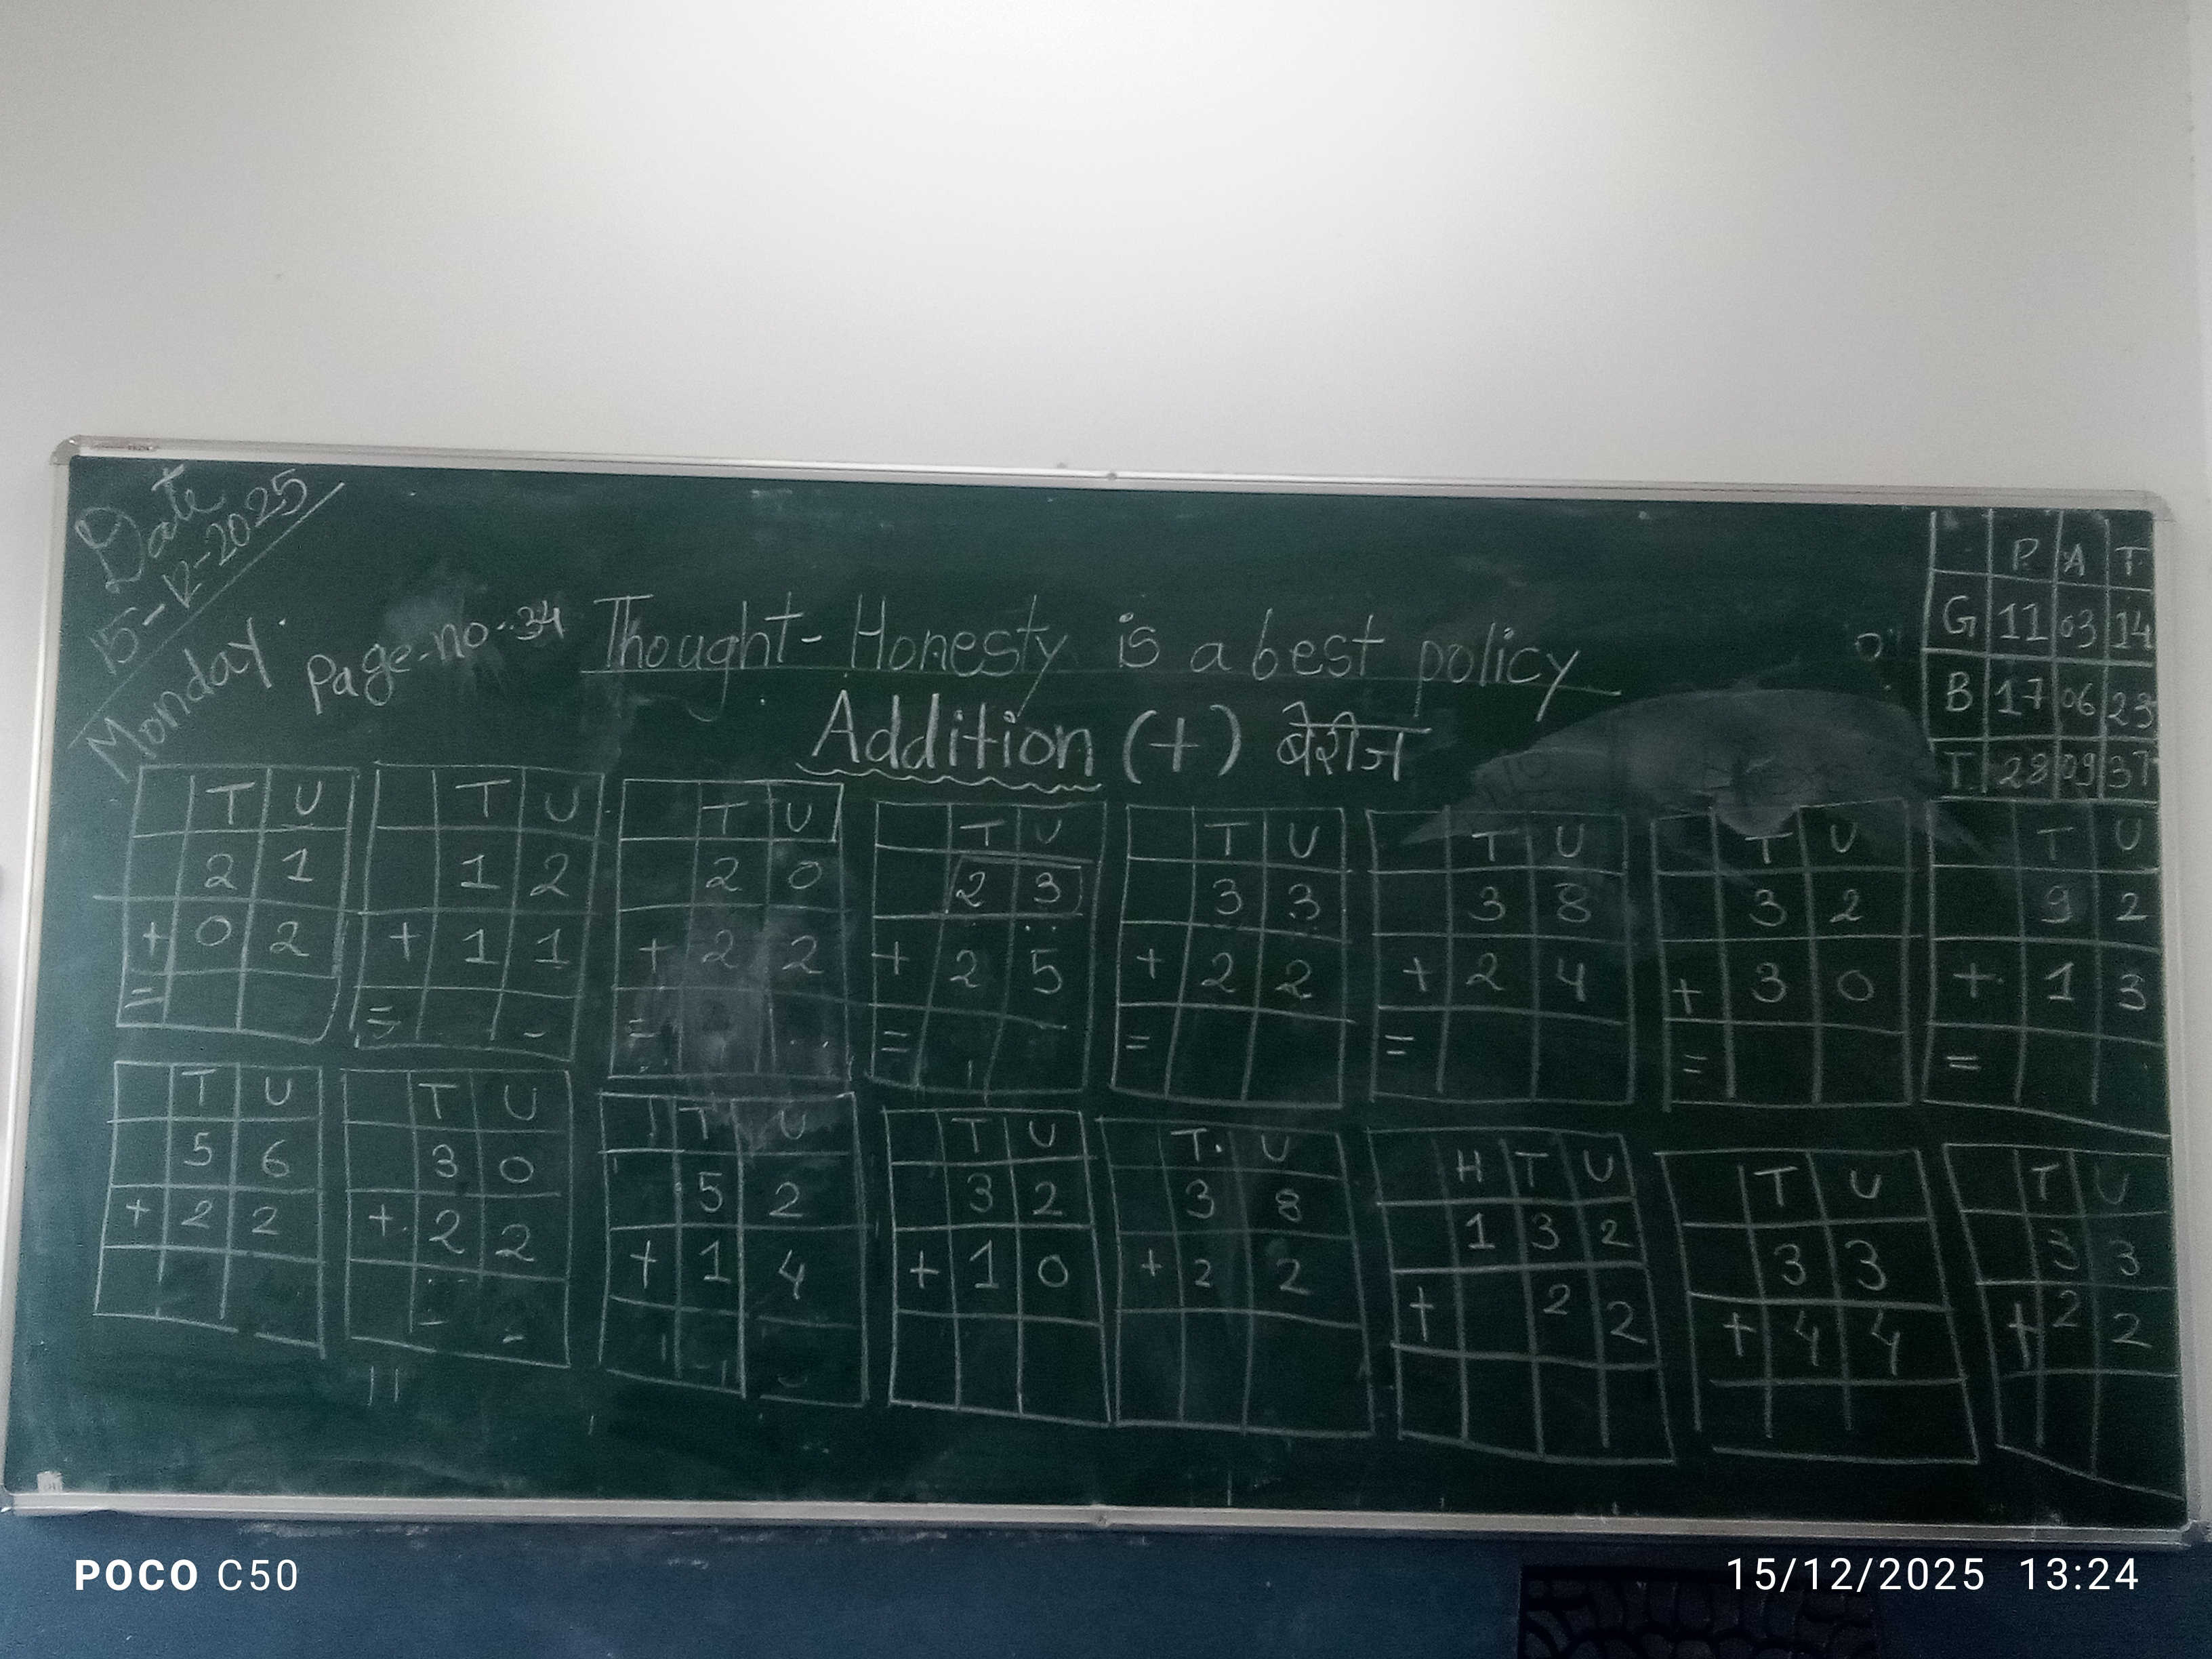 Date
15-12-2025
Monday.
Page-no-34
Thought- Honesty is a best policy
Addition (+) बेरीज
P. A T.
G 11 03 14
B 17 06 23
T. 28 09 37
T U
2 1
+ 0 2
=
T U
1 2
+ 1 1
=
T U
2 0
+ 2 2
=
T U
2 3
+ 2 5
=
T U
3 3
+ 2 2
=
T U
3 8
+ 2 4
=
T U
3 2
+ 3 0
=
T U
9 2
+ 1 3
=
T U
5 6
+ 2 2
T U
3 0
+ 2 2
T U
5 2
+ 1 4
T U
3 2
+ 1 0
T. U
3 8
+ 2 2
H T U
1 3 2
+ 2 2
T U
3 3
+ 4 4
T U
3 3
+ 2 2
POCO C50
15/12/2025 13:24